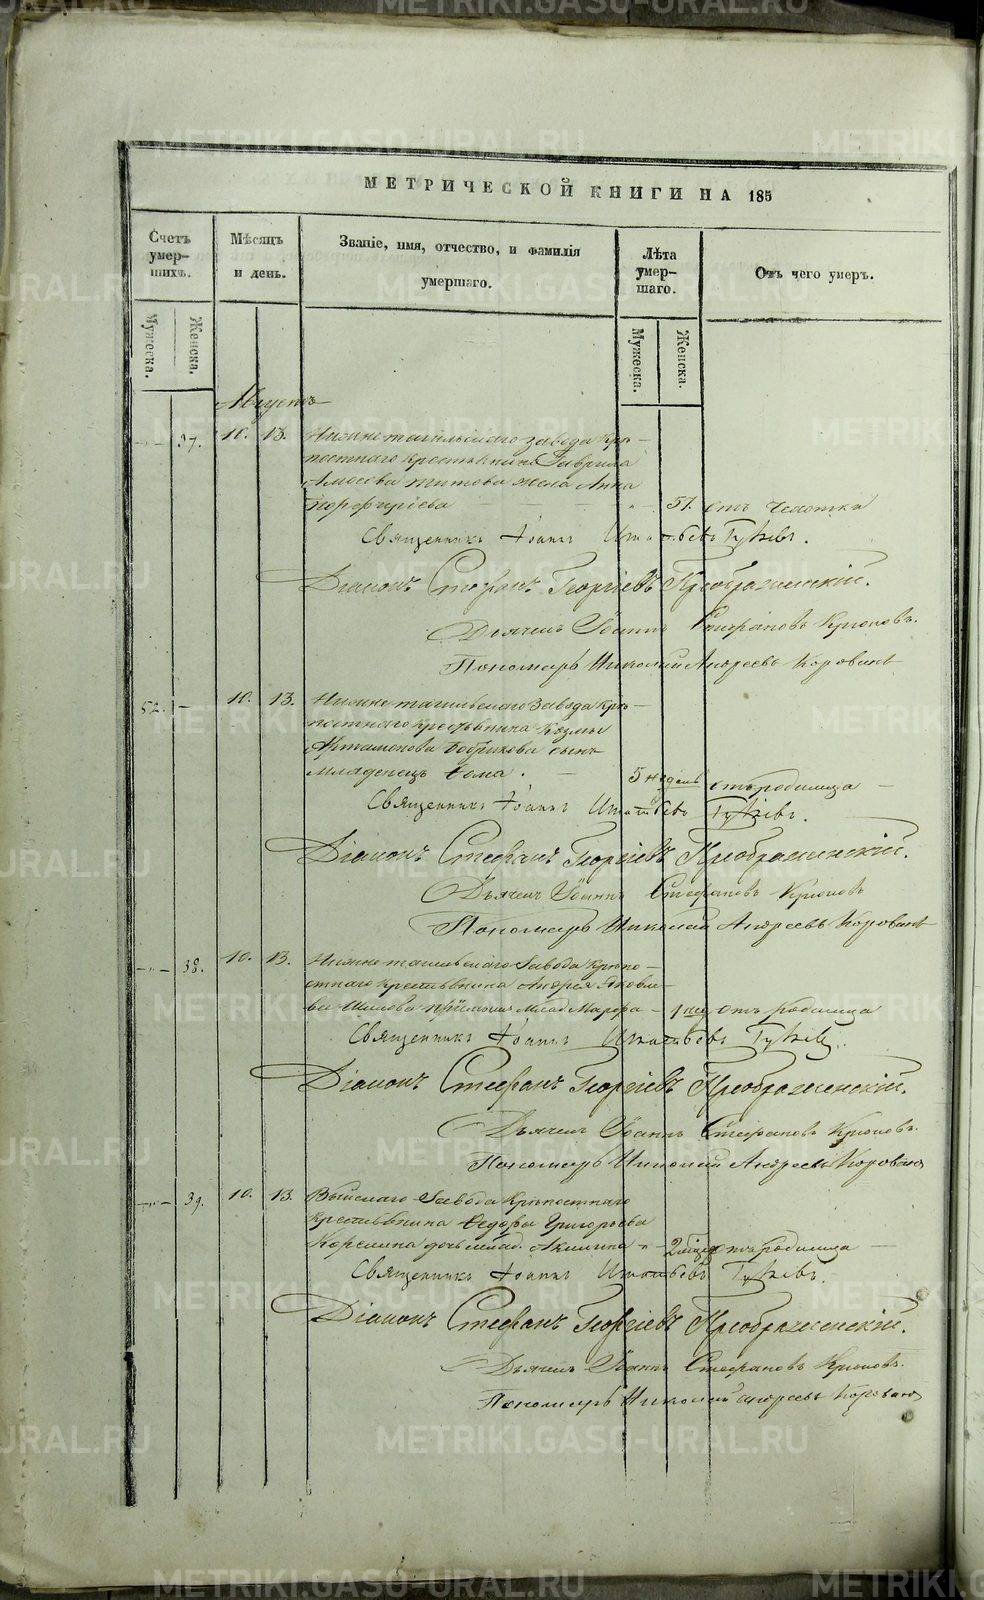 МЕТРИЧЕСКОЙ КНИГИ НА 185
Счетъ умершихъ.
Мѣсяцъ и день.
Званіе, имя, отчество, и фамилія умершаго.
Лѣта умершаго.
Отъ чего умеръ.
Мужеска.
Женска.
Мужеска.
Женска.
Августъ
37. 10. 13. Нижнетагильскаго завода крѣ-
постнаго крестьянина Гаврила
Амосова Титова жена Анна
Порфирьева 57. отъ чахотки
Священникъ Іоаннъ Игнатьевъ
Діаконъ Стефанъ Георгіевъ Преображенскій.
Дьячекъ Іоаннъ Стефановъ Крюковъ.
Пономарь Николай Андреевъ Коровинъ
52. 10. 13. Нижнетагильскаго завода крѣ-
постнаго крестьянина Козмы
Артамонова Бобрикова сынъ
младенецъ Ѳома. 5 недѣль отъ родимца
Священникъ Іоаннъ Игнатьевъ
Діаконъ Стефанъ Георгіевъ Преображенскій.
Дьячекъ Іоаннъ Стефановъ Крюковъ
Пономарь Николай Андреевъ Коровинъ
38. 10. 13. Нижнетагильскаго завода крѣпо-
стнаго крестьянина Андрея Яковле-
ва млад. Марѳа 1 нед. отъ родимца
Священникъ Іоаннъ Игнатьевъ
Діаконъ Стефанъ Георгіевъ Преображенскій.
Дьячекъ Іоаннъ Стефановъ Крюковъ.
Пономарь Николай Андреевъ Коровинъ
39. 10. 13. Выйскаго завода крѣпостнаго
крестьянина Ѳедора Григорьева
Корелина дочь млад. Акилина 2 отъ родимца
Священникъ Іоаннъ Игнатьевъ
Діаконъ Стефанъ Георгіевъ Преображенскій.
Дьячекъ Іоаннъ Стефановъ Крюковъ.
Пономарь Николай Андреевъ Коровинъ
METRIKI.GASO-URAL.RU